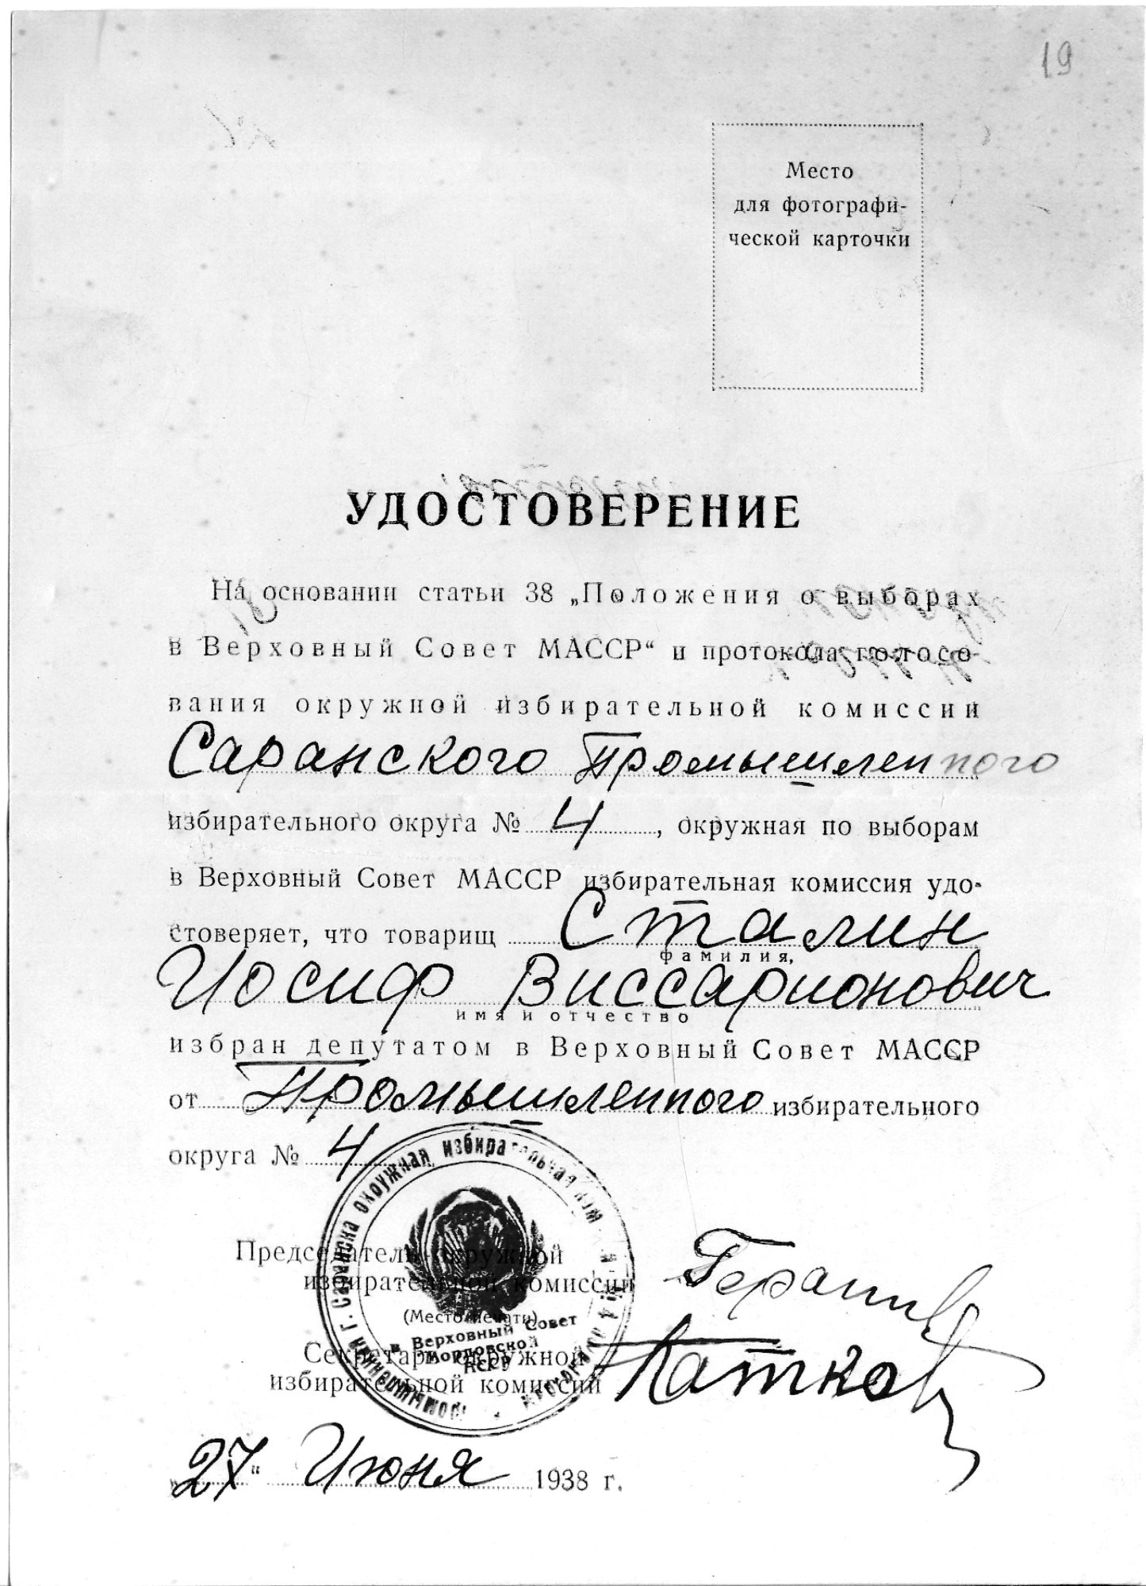 19
Место
для фотографи-
ческой карточки
УДОСТОВЕРЕНИЕ
На основании статьи 38 „Положения о выборах
в Верховный Совет МАССР“ и протокола голосо-
вания окружной избирательной комиссии
Саранского Промышленного
избирательного округа № 4, окружная по выборам
в Верховный Совет МАССР избирательная комиссия удо-
стоверяет, что товарищ Сталин
фамилия,
Иосиф Виссарионович
имя и отчество
избран депутатом в Верховный Совет МАССР
от Промышленного избирательного
округа № 4
Председатель окружной
избирательной комиссии
(Место печати)
Секретарь окружной
избирательной комиссии
Катков
окружная избирательная
в Верховный Совет
Мордовской
АССР
„27“ Июня 1938 г.